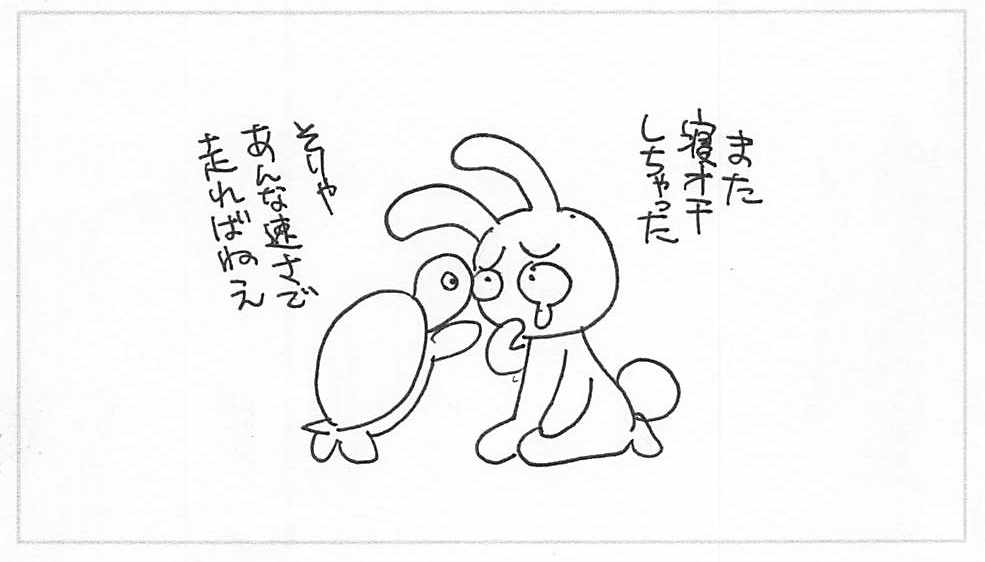 また
寝オチ
しちゃった
そりゃ
あんな速さで
走ればねえ